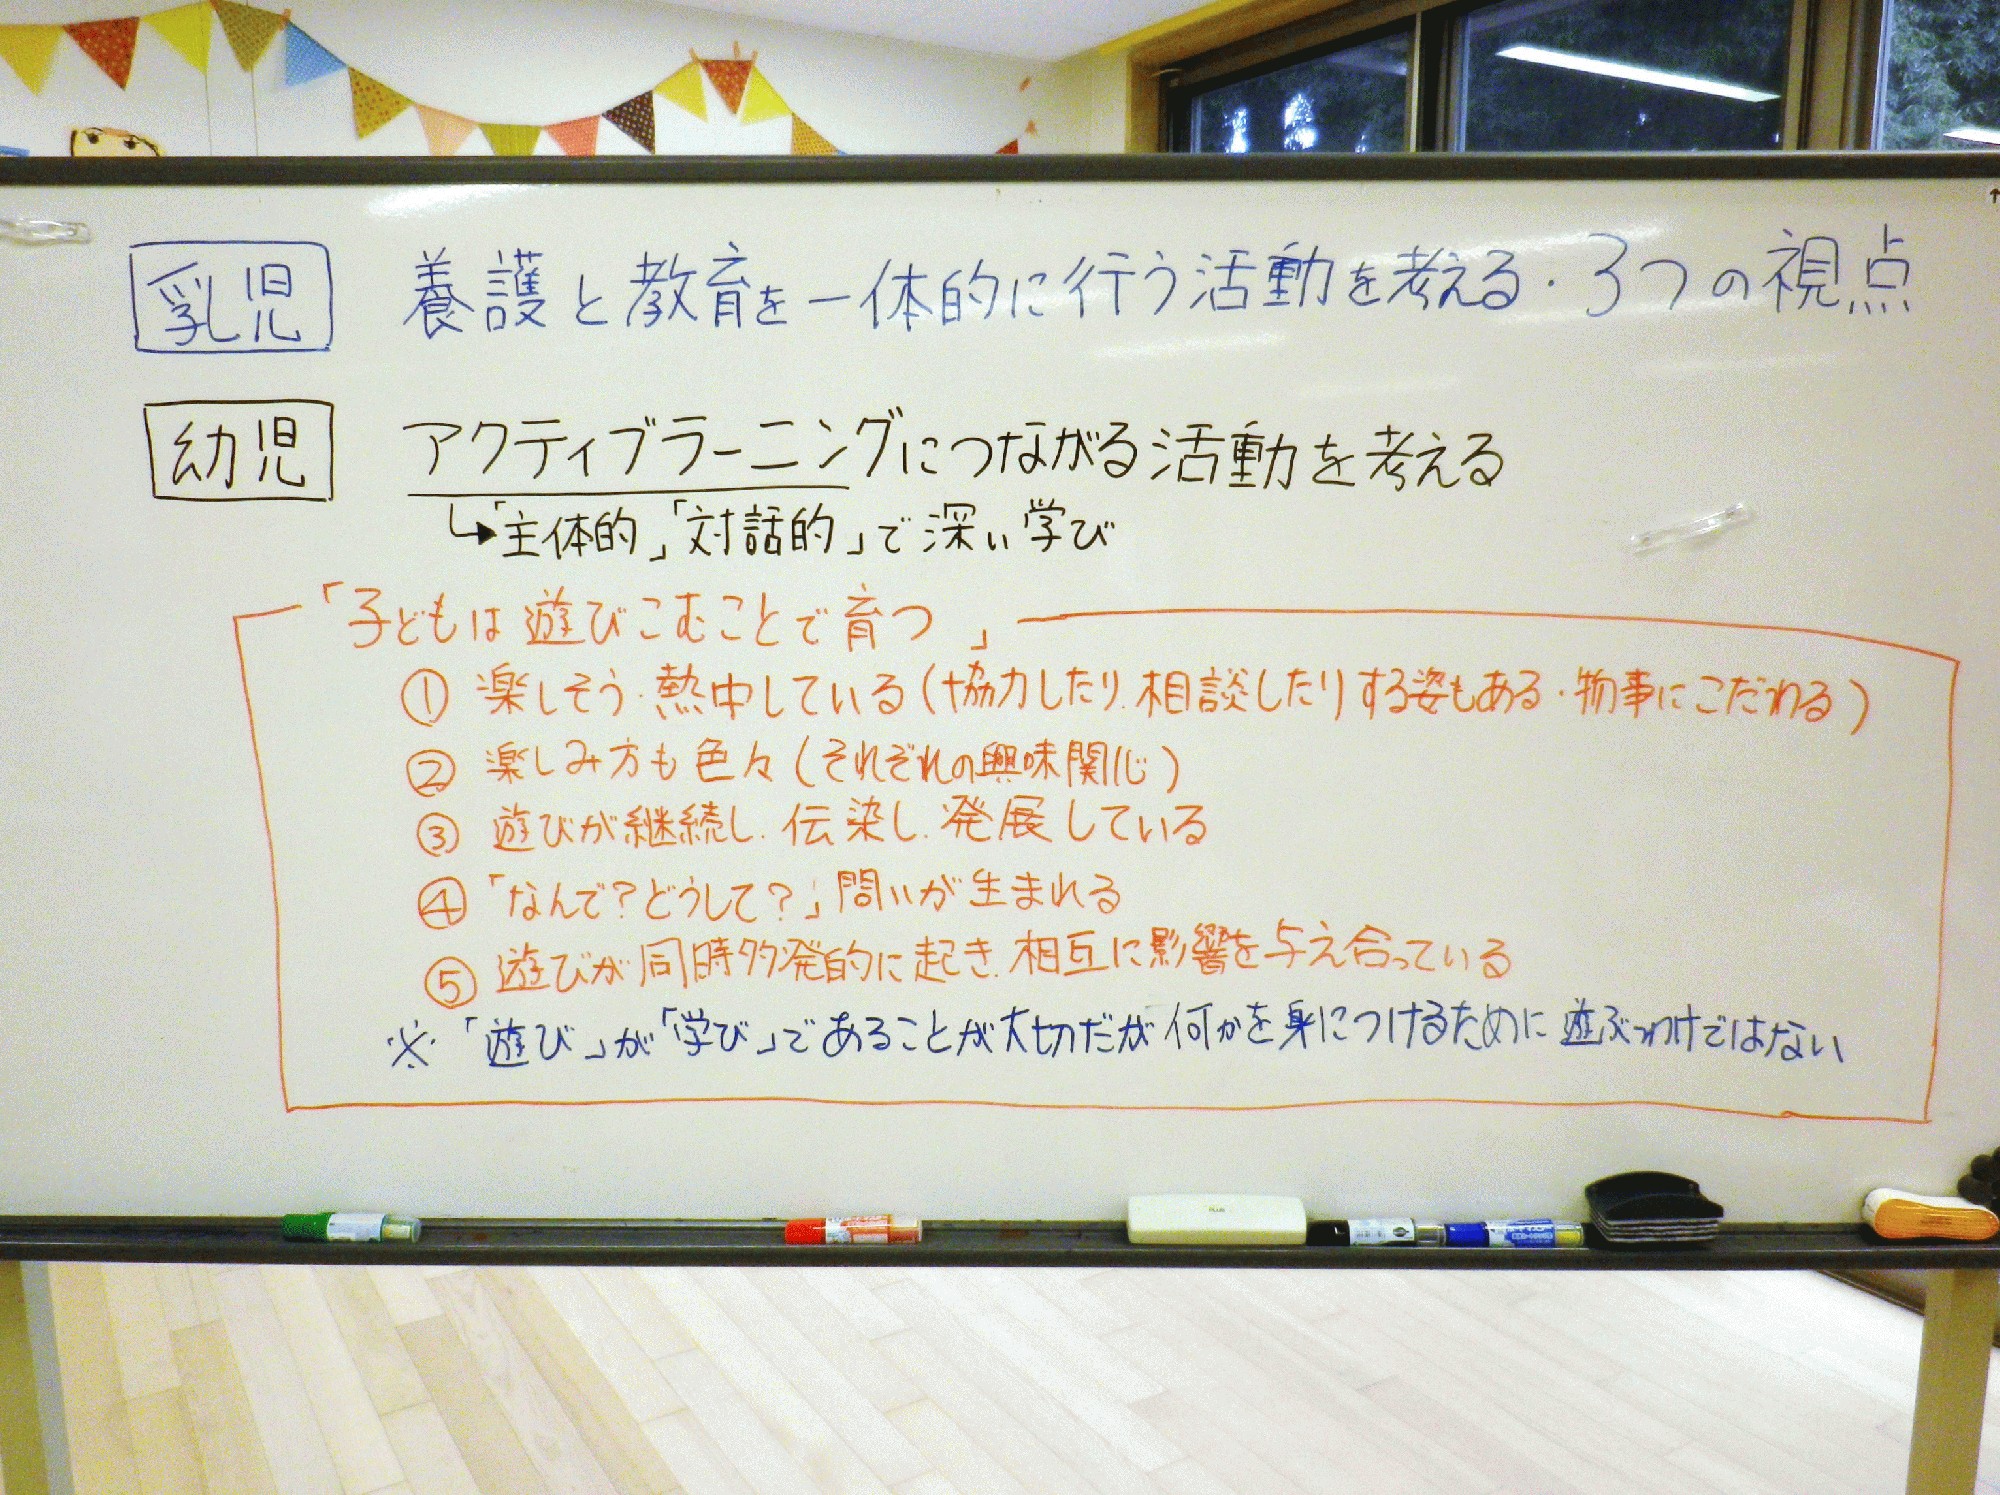 乳児 養護と教育を一体的に行う活動を考える・3つの視点
幼児 アクティブラーニングにつながる活動を考える
↳「主体的」「対話的」で深い学び
「子どもは遊びこむことで育つ」
① 楽しそう・熱中している(協力したり.相談したりする姿もある・物事にこだわる)
② 楽しみ方も色々(それぞれの興味関心)
③ 遊びが継続し.伝染し.発展している
④「なんで?どうして?」問いが生まれる
⑤ 遊びが同時多発的に起き.相互に影響を与え合っている
※「遊び」が「学び」であることが大切だが何かを身につけるために遊ぶわけではない
PLUS